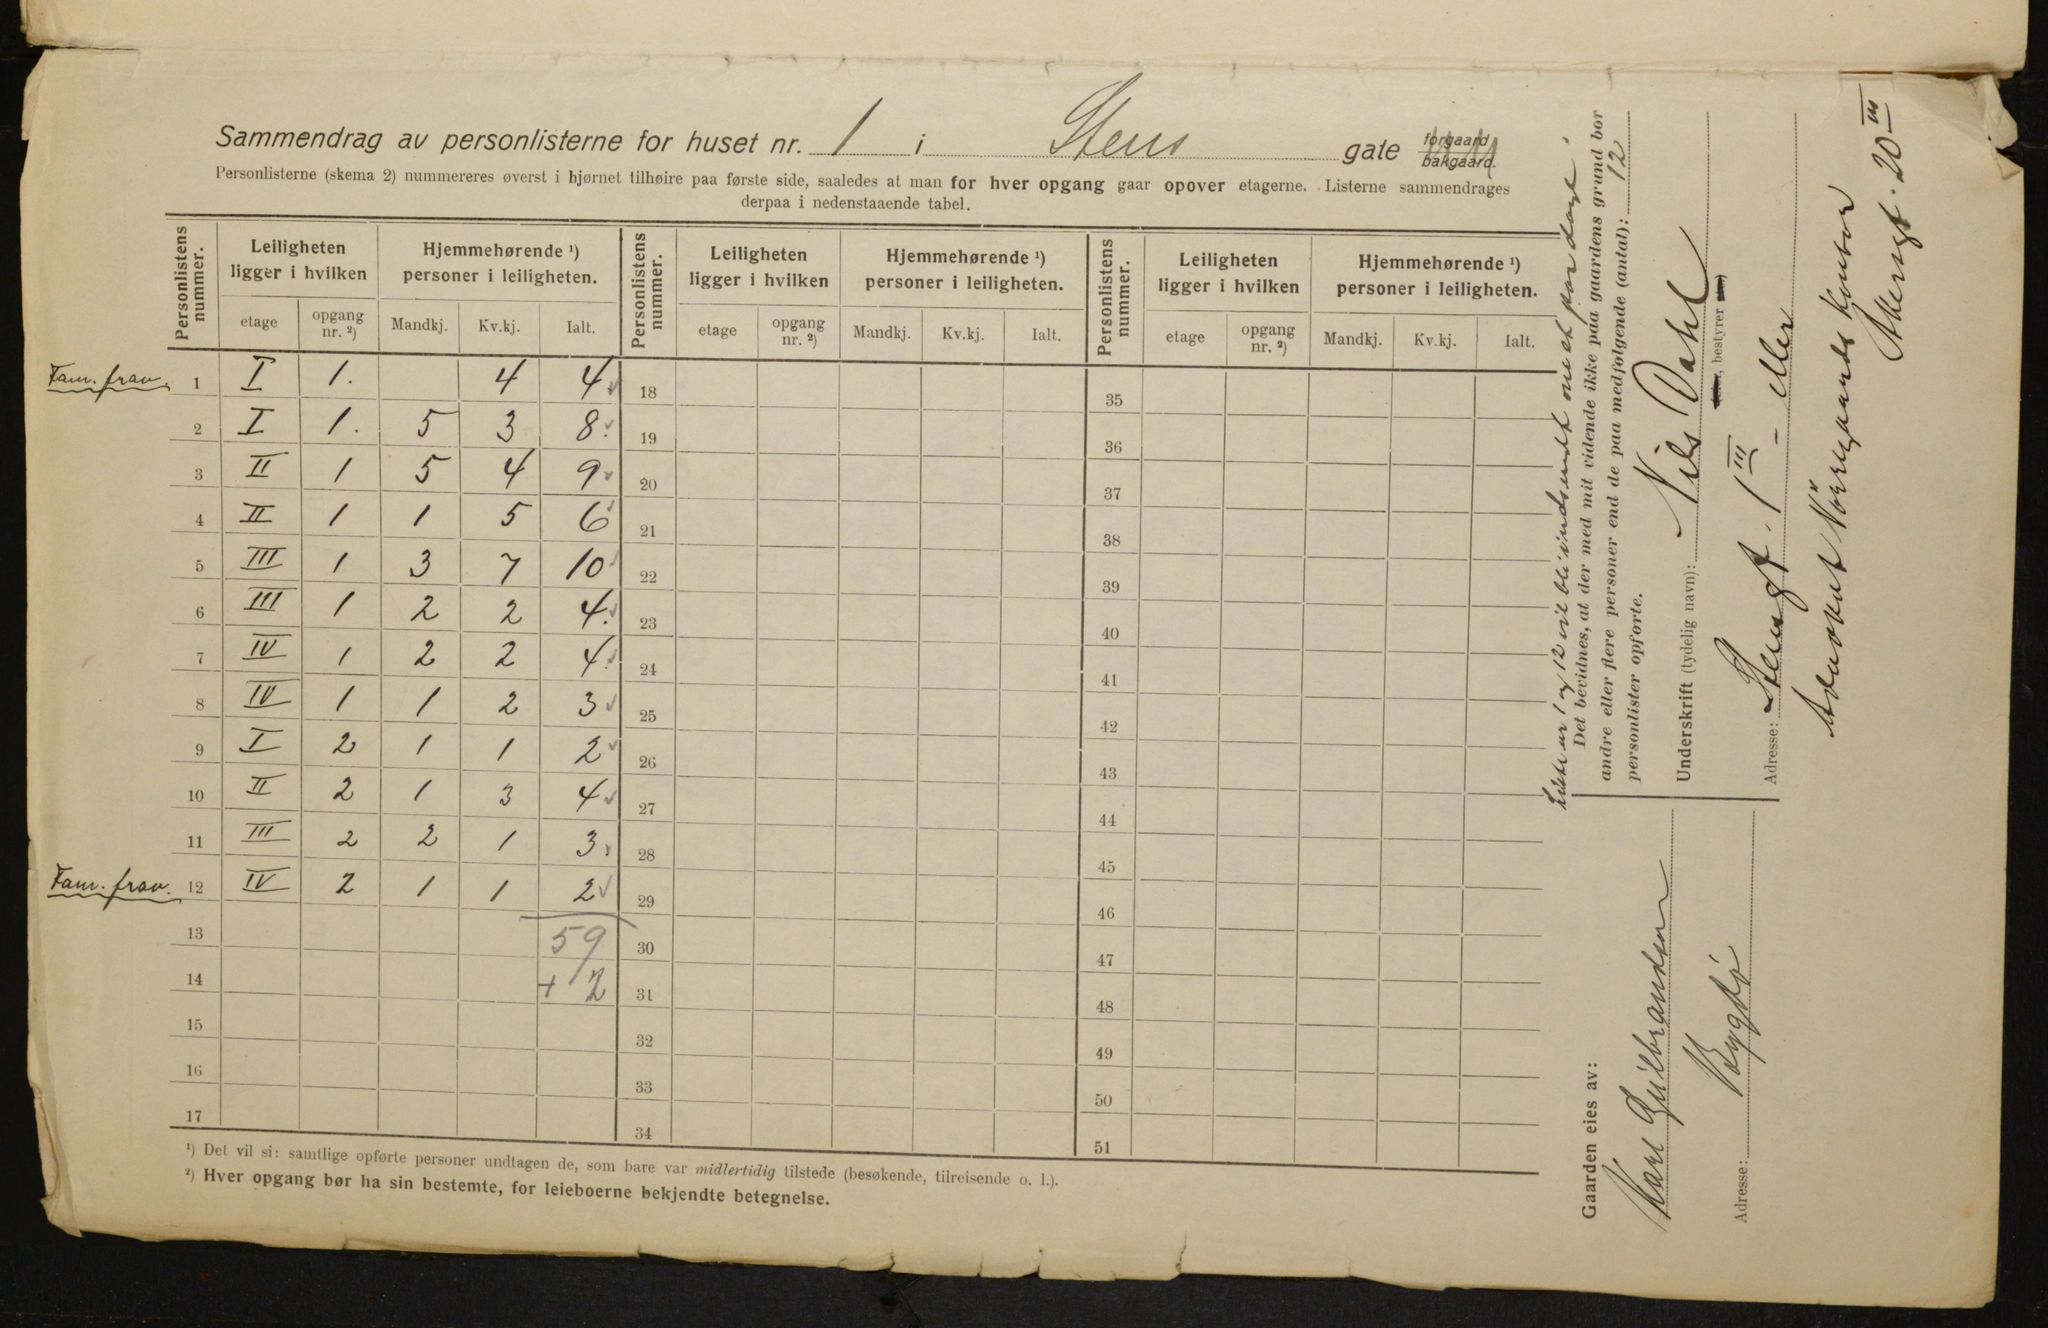 Sammendrag av personlisterne for huset nr. 1 i Stens gate forgaard bakgaard.
Personlisterne (skema 2) nummereres øverst i hjørnet tilhøire paa første side, saaledes at man for hver opgang gaar opover etagerne. Listerne sammendrages
derpaa i nedenstaaende tabel.
Personlistens nummer. Leiligheten ligger i hvilken Hjemmehørende ¹) personer i leiligheten. Personlistens nummer. Leiligheten ligger i hvilken Hjemmehørende ¹) personer i leiligheten. Personlistens nummer. Leiligheten ligger i hvilken Hjemmehørende ¹) personer i leiligheten.
etage opgang nr. ²) Mandkj. Kv.kj. Ialt. etage opgang nr. ²) Mandkj. Kv.kj. Ialt. etage opgang nr. ²) Mandkj. Kv.kj. Ialt.
Fam. frav. 1 I 1. 4 4 18 35
2 I 1. 5 3 8. 19 36
3 II 1 5 4 9 20 37
4 II 1 1 5 6 21 38
5 III 1 3 7 10 22 39
6 III 1 2 2 4. 23 40
7 IV 1 2 2 4. 24 41
8 IV 1 1 2 3 25 42
9 I 2 1 1 2 26 43
10 II 2 1 3 4 27 44
11 III 2 2 1 3. 28 45
Fam. frav. 12 IV 2 1 1 2 29 46
13 59 30 47
14 + 2 31 48
15 32 49
16 33 50
17 34 51
¹) Det vil si: samtlige opførte personer undtagen de, som bare var midlertidig tilstede (besøkende, tilreisende o. l.).
²) Hver opgang bør ha sin bestemte, for leieboerne bekjendte betegnelse.
Lister nr 1 og 12 vil bli indsendt om et par dage.
Det bevidnes, at der med mit vidende ikke paa gaardens grund bor
andre eller flere personer end de paa medfølgende (antal): 12
personlister opførte.
Underskrift (tydelig navn): Nils Dahl
, bestyrer
Adresse: Stensgt. 1 III – eller
Advokat Nörregaards Kontor
Akersgt. 20 III
Gaarden eies av:
Karl Gulbrandsen
Adresse: Bygdø